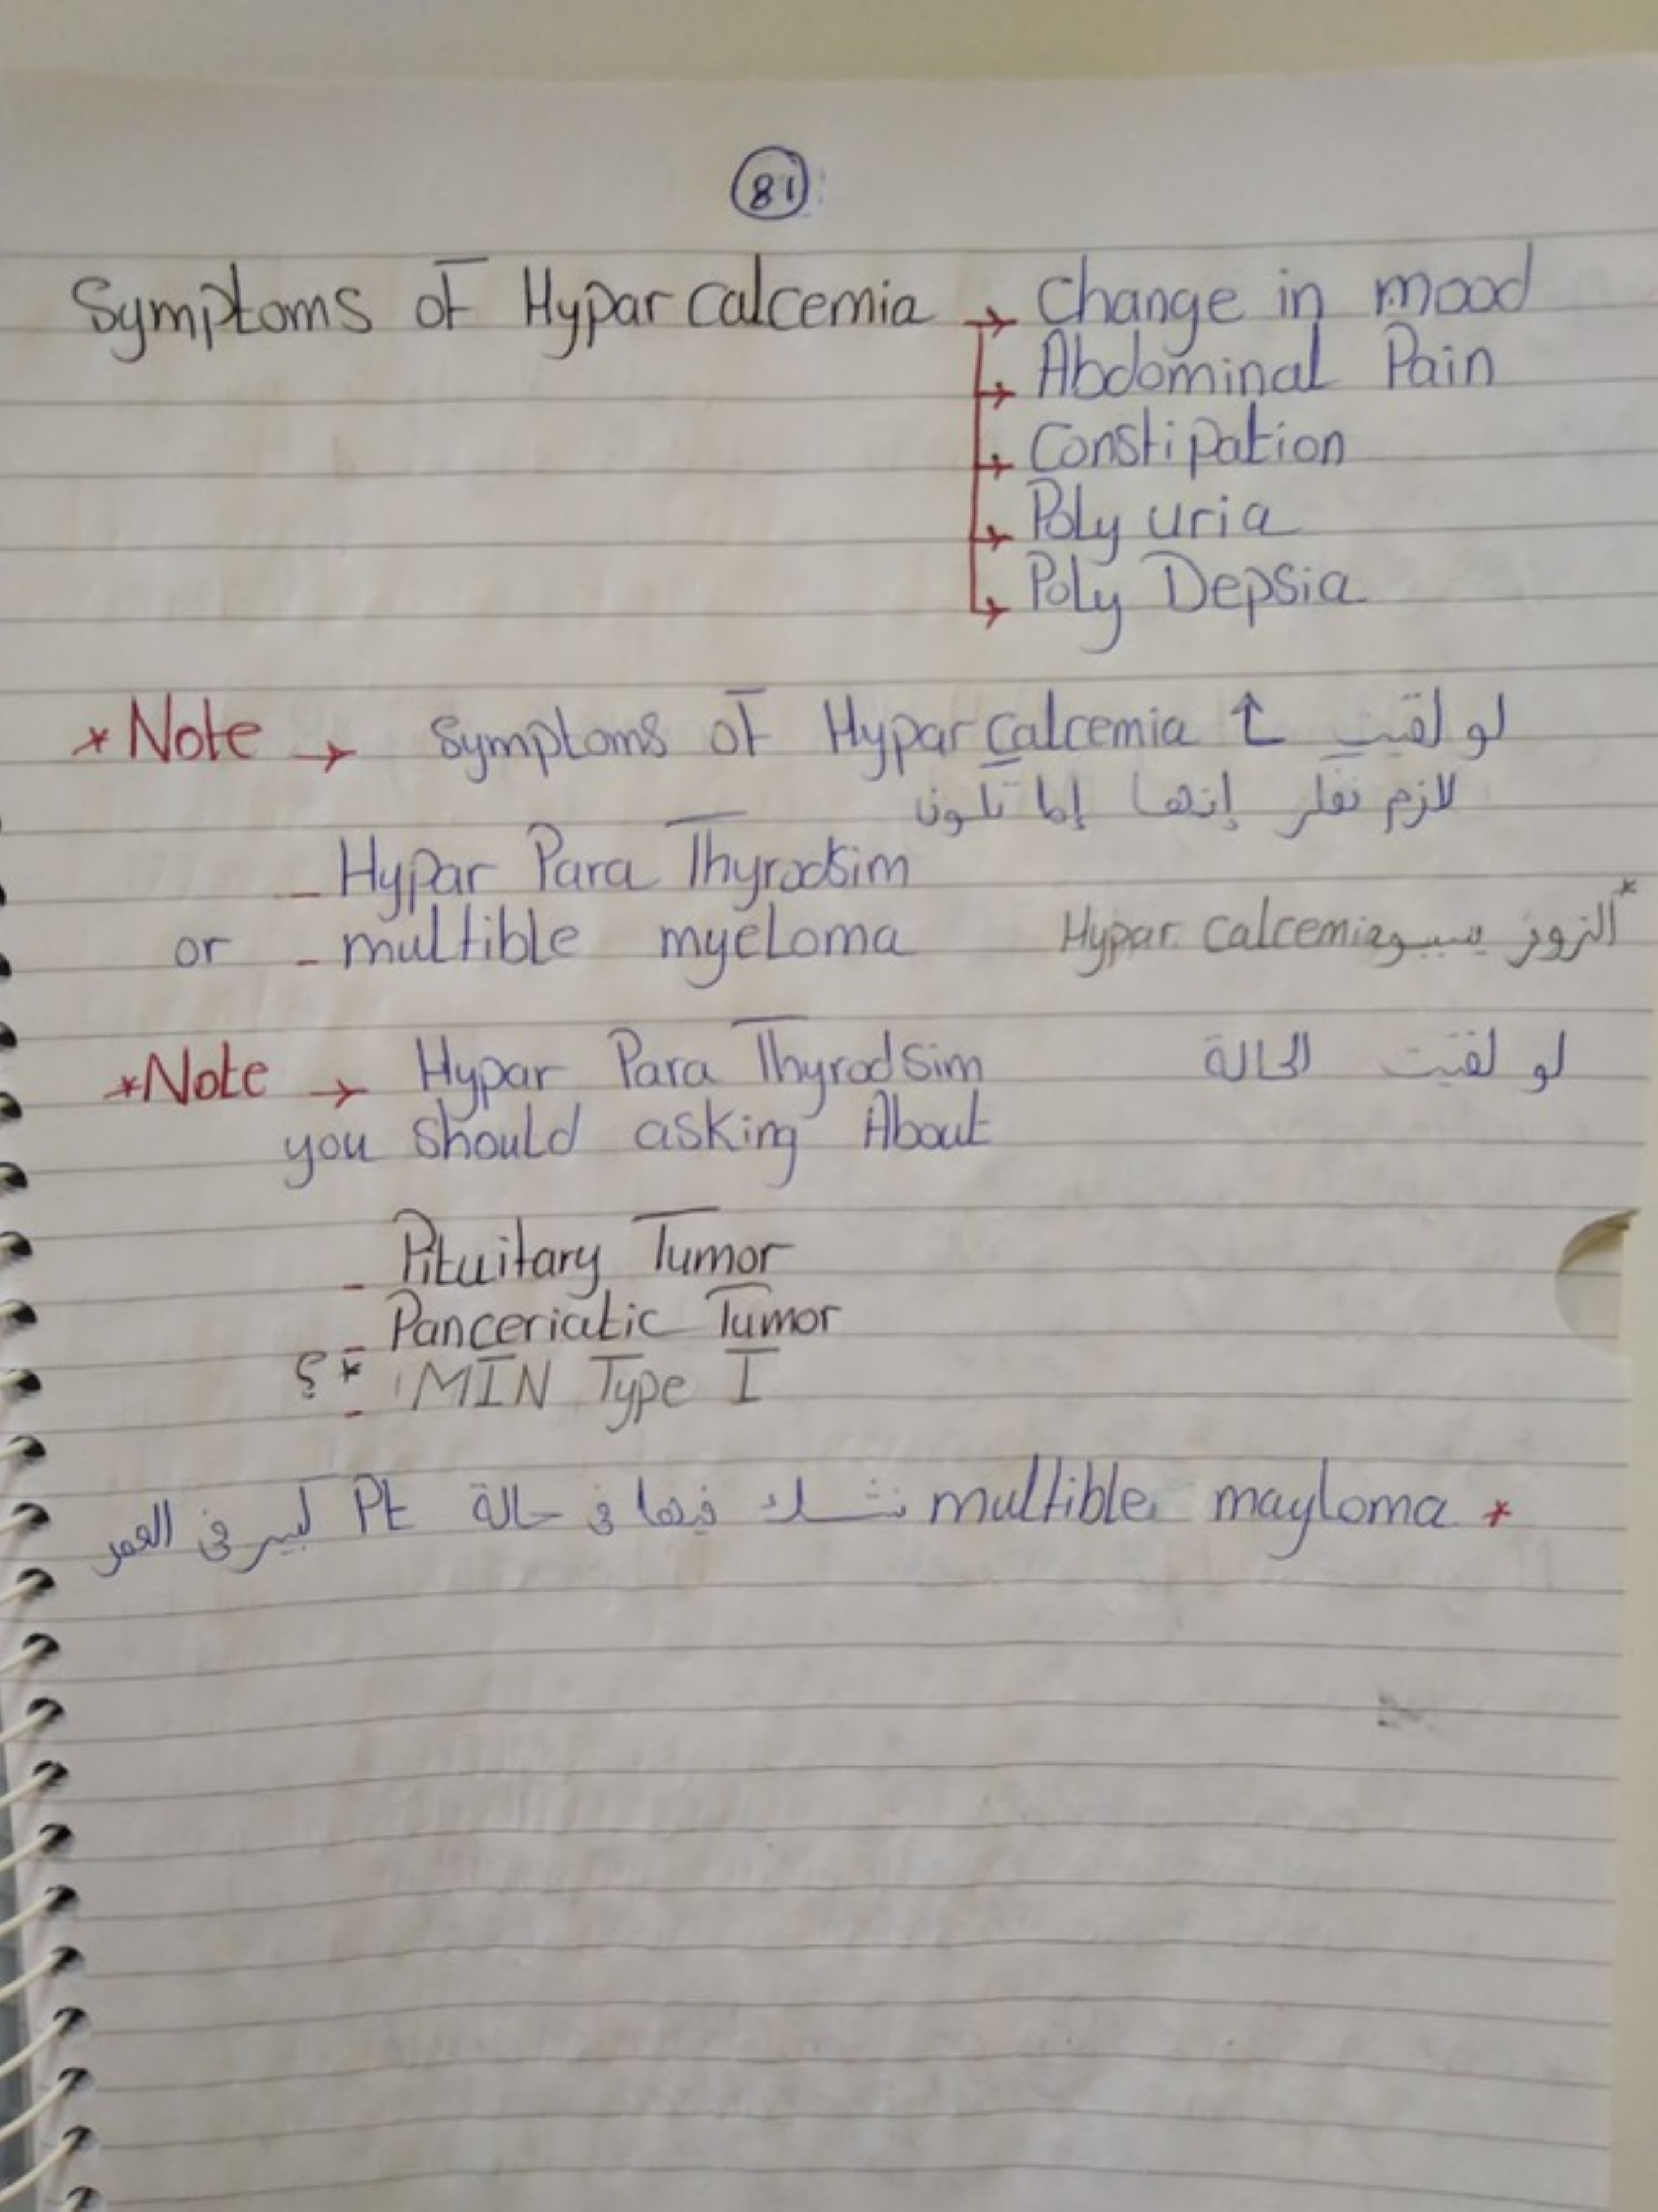 81
Symptoms of Hypar calcemia → change in mood
→ Abdominal Pain
→ Constipation
→ Poly uria
→ Poly Depsia
* Note → symptoms of Hypar calcemia ↑ لو لقيت
لازم نفكر إنها إما تكون
- Hypar Para Thyrodsim
or - multible myeloma
* الزوز يسببو Hypar calcemia
* Note → Hypar Para Thyrodsim لو لقيت الحالة
you should asking About
- Pituitary Tumor
- Panceriatic Tumor
؟ * - MIN Type I
* multible mayloma نشك فيها في حالة Pt كبير في العمر